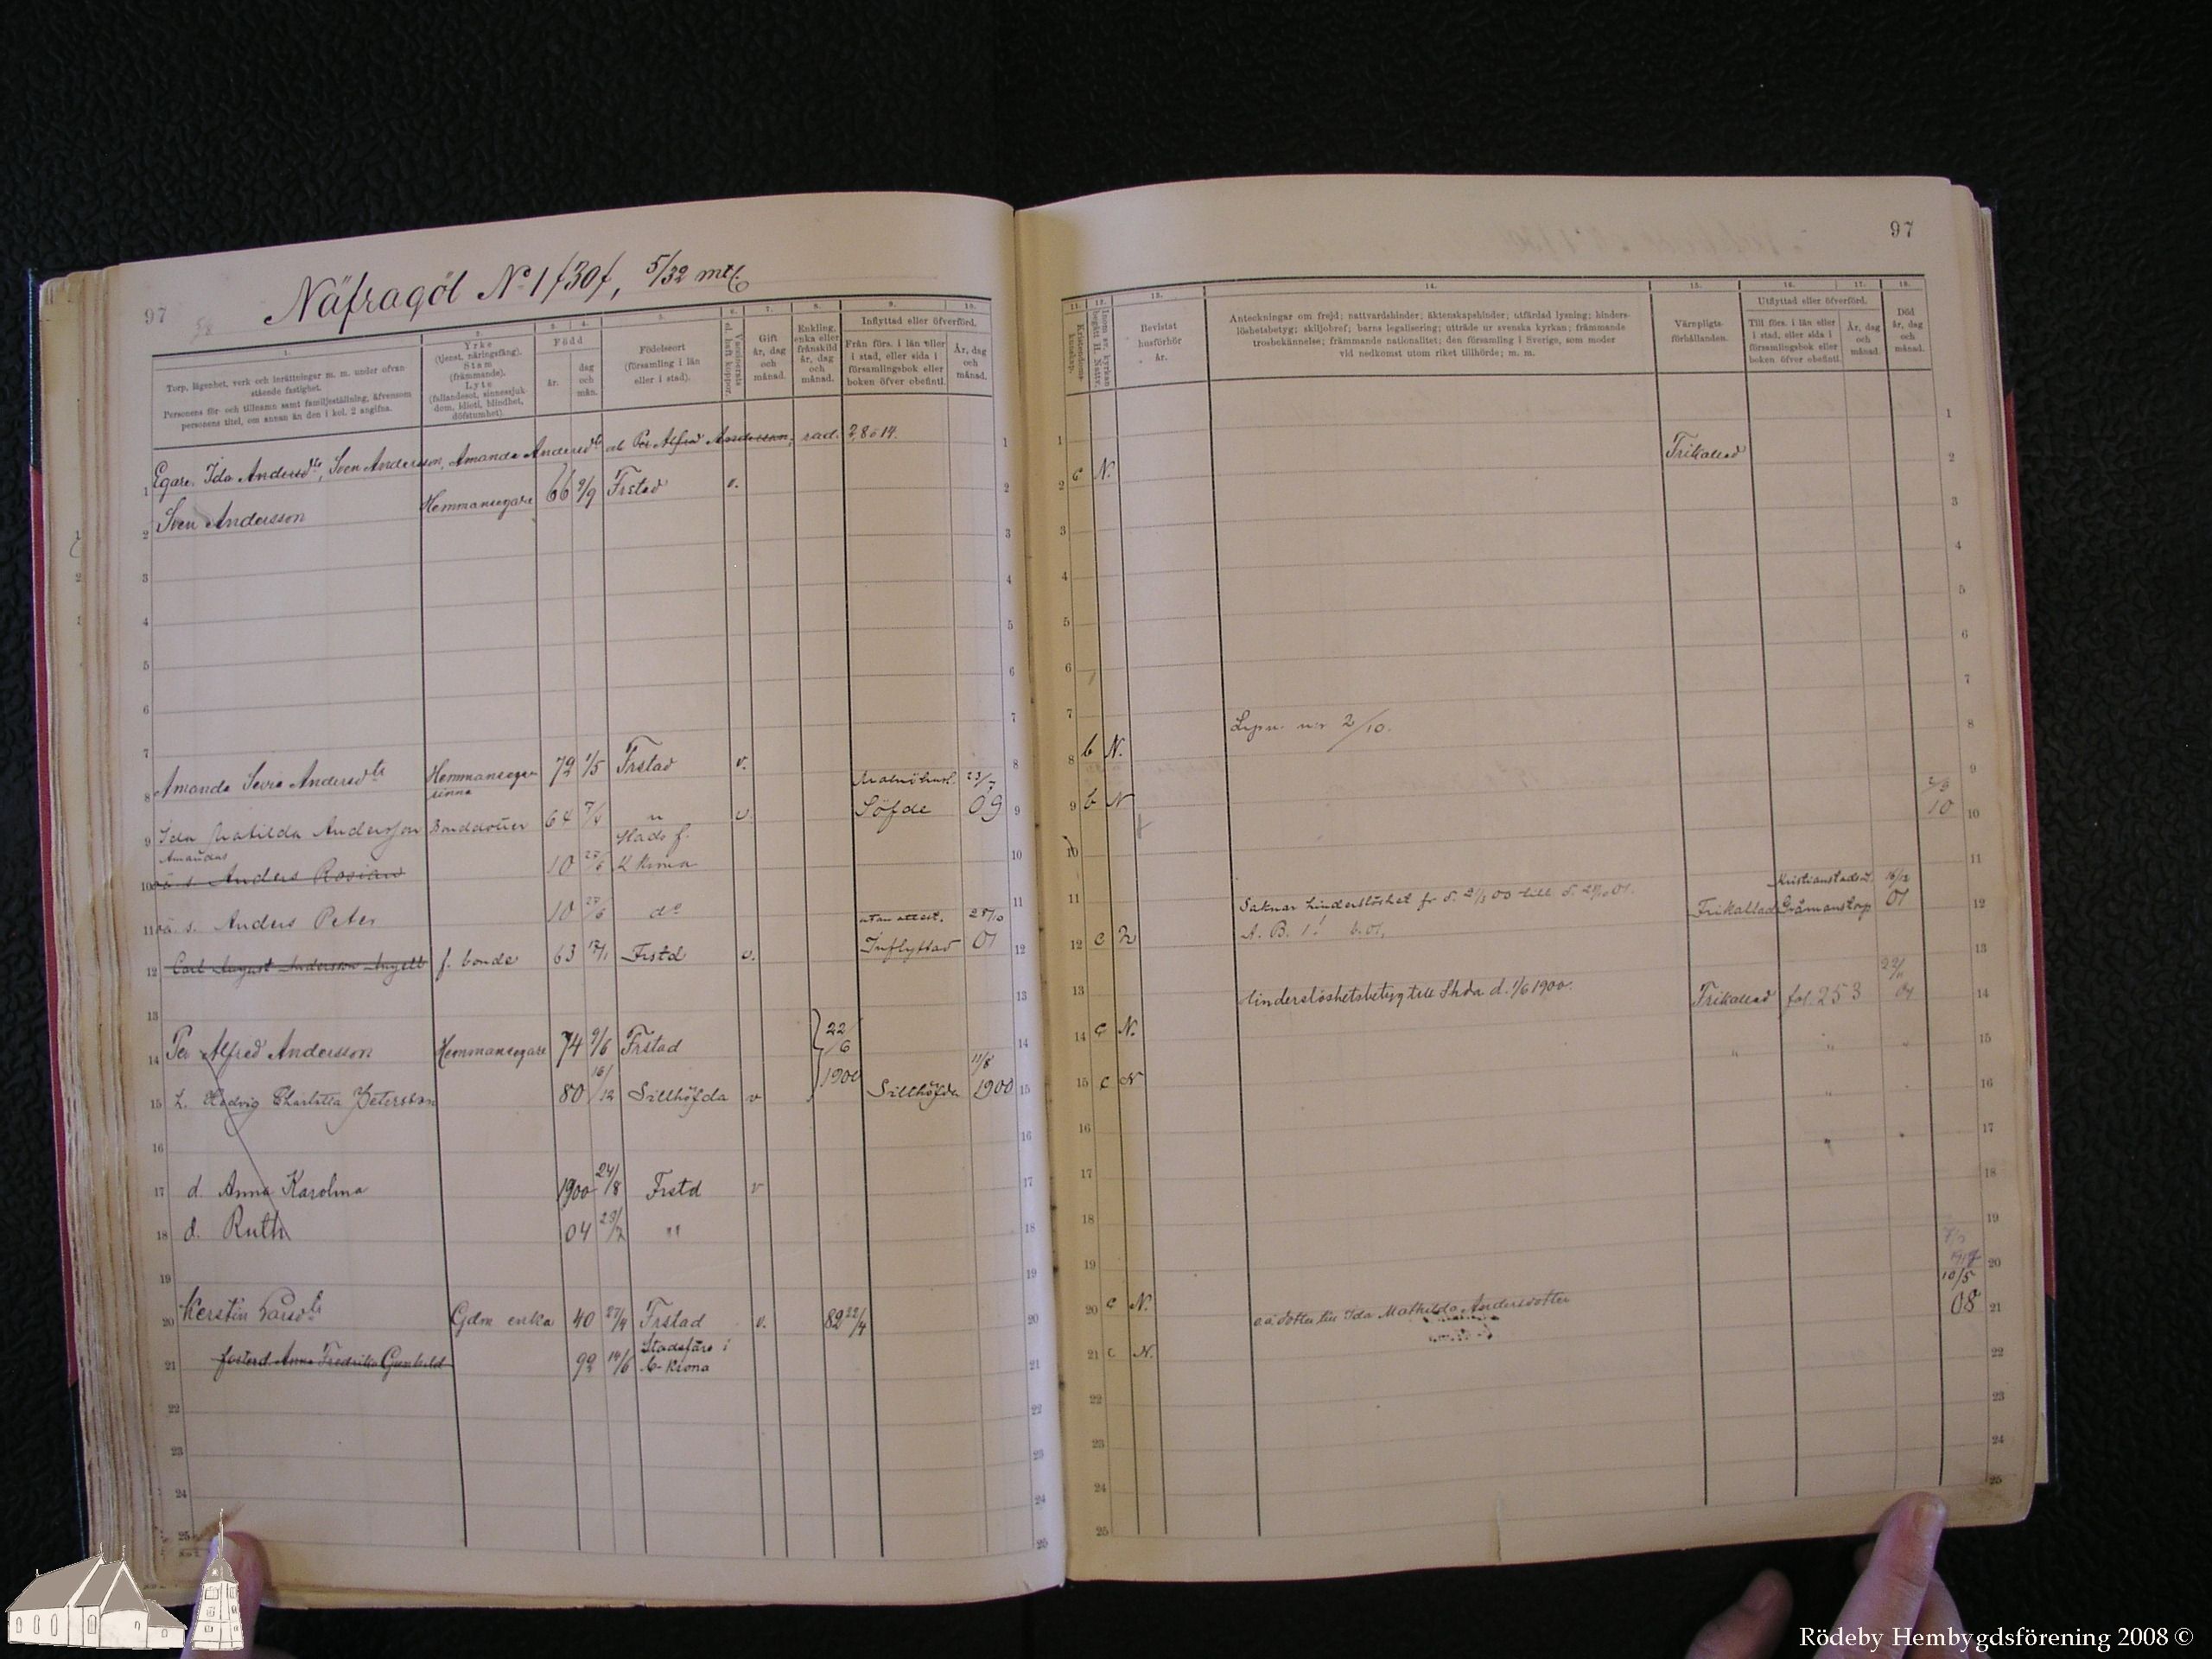 97
Näfragöl No 1 f30f, 5/32 mtl.
1.
Torp, lägenhet, verk och inrättningar m. m. under ofvan
stående fastighet.
Personens för- och tillnamn samt familjeställning, äfvensom
personens titel, om annan än den i kol. 2 angifna.
2.
Yrke
(tjenst, näringsfång).
Stam
(främmande).
Lyte
(fallandesot, sinnessjuk-
dom, idioti, blindhet,
döfstumhet).
3. 4.
Född
år.
dag
och
mån.
5.
Födelseort
(församling i län
eller i stad).
6.
Vaccinerats
el. haft koppor.
7.
Gift
år, dag
och
månad.
8.
Enkling,
enka eller
frånskild
år, dag
och
månad.
9. 10.
Inflyttad eller öfverförd.
Från förs. i län eller
i stad, eller sida i
församlingsbok eller
boken öfver obefintl.
År, dag
och
månad.
1 Egare, Ida Andersdtr, Sven Andersson, Amanda Andersdtr ch Per Alfred Andersson, rad. 2, 8 o 14. 1
2 Sven Andersson Hemmansegare 66 9/9 Frstad v. 2
3 3
4 4
5 5
6 6
7 7
8 Amanda Andersdtr Hemmansegar- 72 1/5 Frstad v. 8
inna
9 Ida Matilda Andersson Bonddotter 64 7/4 " v. Söfde 23/7 09 9
Amandas
10 oä s. Anders 10 27/6 Stads f. K krona 10
11 oä. s. Anders Peter 10 27/6 do 11
12 Carl August Andersson f. bonde 63 Frstd v. utan attest. Inflyttad 28/10 01 12
13 13
14 Per Alfred Andersson Hemmansegare 74 9/6 Frstad 22/6 14
15 h. Hedvig Charlotta Petersson 80 16/12 Sillhöfda v 1900 Sillhöfda 11/8 1900 15
16 16
17 d. Anna Karolina 1900 24/8 Frstd v 17
18 d. Ruth 04 " 18
19 19
20 Kerstin Parsdtr Gdm enka 40 27/4 Frstad v. 82 22/4 20
21 fosterd. Anna Fredrika Gunhild 92 14/6 Stadsförs i C-krona 21
22 22
23 23
24 24
25 25
97
11.
Kristendoms-
kunskap.
12.
Inom sv. kyrkan
begått H. Nattv.
13.
Bevistat
husförhör
år.
14.
Anteckningar om frejd; nattvardshinder; äktenskapshinder; utfärdad lysning; hinders-
löshetsbetyg; skiljobref; barns legalisering; utträde ur svenska kyrkan; främmande
trosbekännelse; främmande nationalitet; den församling i Sverige, som moder
vid nedkomst utom riket tillhörde; m. m.
15.
Värnpligts-
förhållanden.
16. 17.
Utflyttad eller öfverförd.
Till förs. i län eller
i stad, eller sida i
församlingsbok eller
boken öfver obefintl.
År, dag
och
månad.
18.
Död
år, dag
och
månad.
1 1
2 c N. Frikallad 2
3 3
4 4
5 5
6 6
7 7
8 b N. 2/10. 8
9 b N 10 9
10 10
11 Saknar hinderslöshet fr d. till d. 11
12 c Frikallad Kristianstads l. Gråmanstorp 16/12 01 12
13 13
14 c N. hinderslöshetsbetyg till Shda d. 1/6 1900. Frikallad fol. 253 22/11 14
15 c N " " " 15
16 " 16
17 " " 17
18 18
19 19
20 c N. oä dotter till Ida Mathilda Andersdotter 20
21 c N. 10/5 08 21
22 22
23 23
24 24
25 25
Rödeby Hembygdsförening 2008 ©